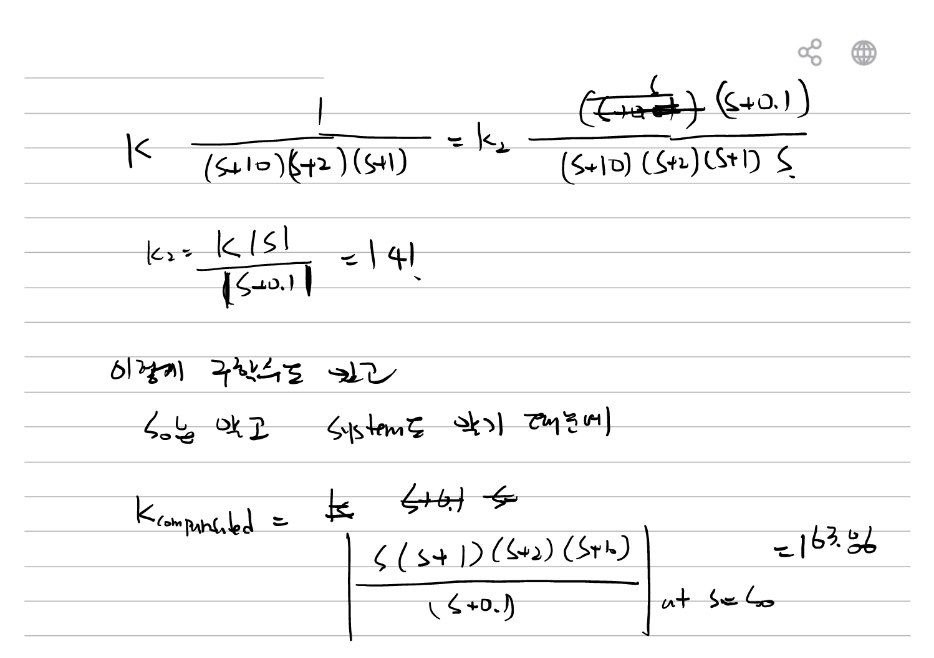 K 1/((s+10)(s+2)(s+1)) = k₂ (s)(s+0.1)/((s+10)(s+2)(s+1) s)
k₂ = K|s|/|s+0.1| = 141.
이렇게 구할수도 있고
s₀를 알고 system도 알기 때문에
K compensated = |s(s+1)(s+2)(s+10)/(s+0.1)| at s=s₀ = 163.06